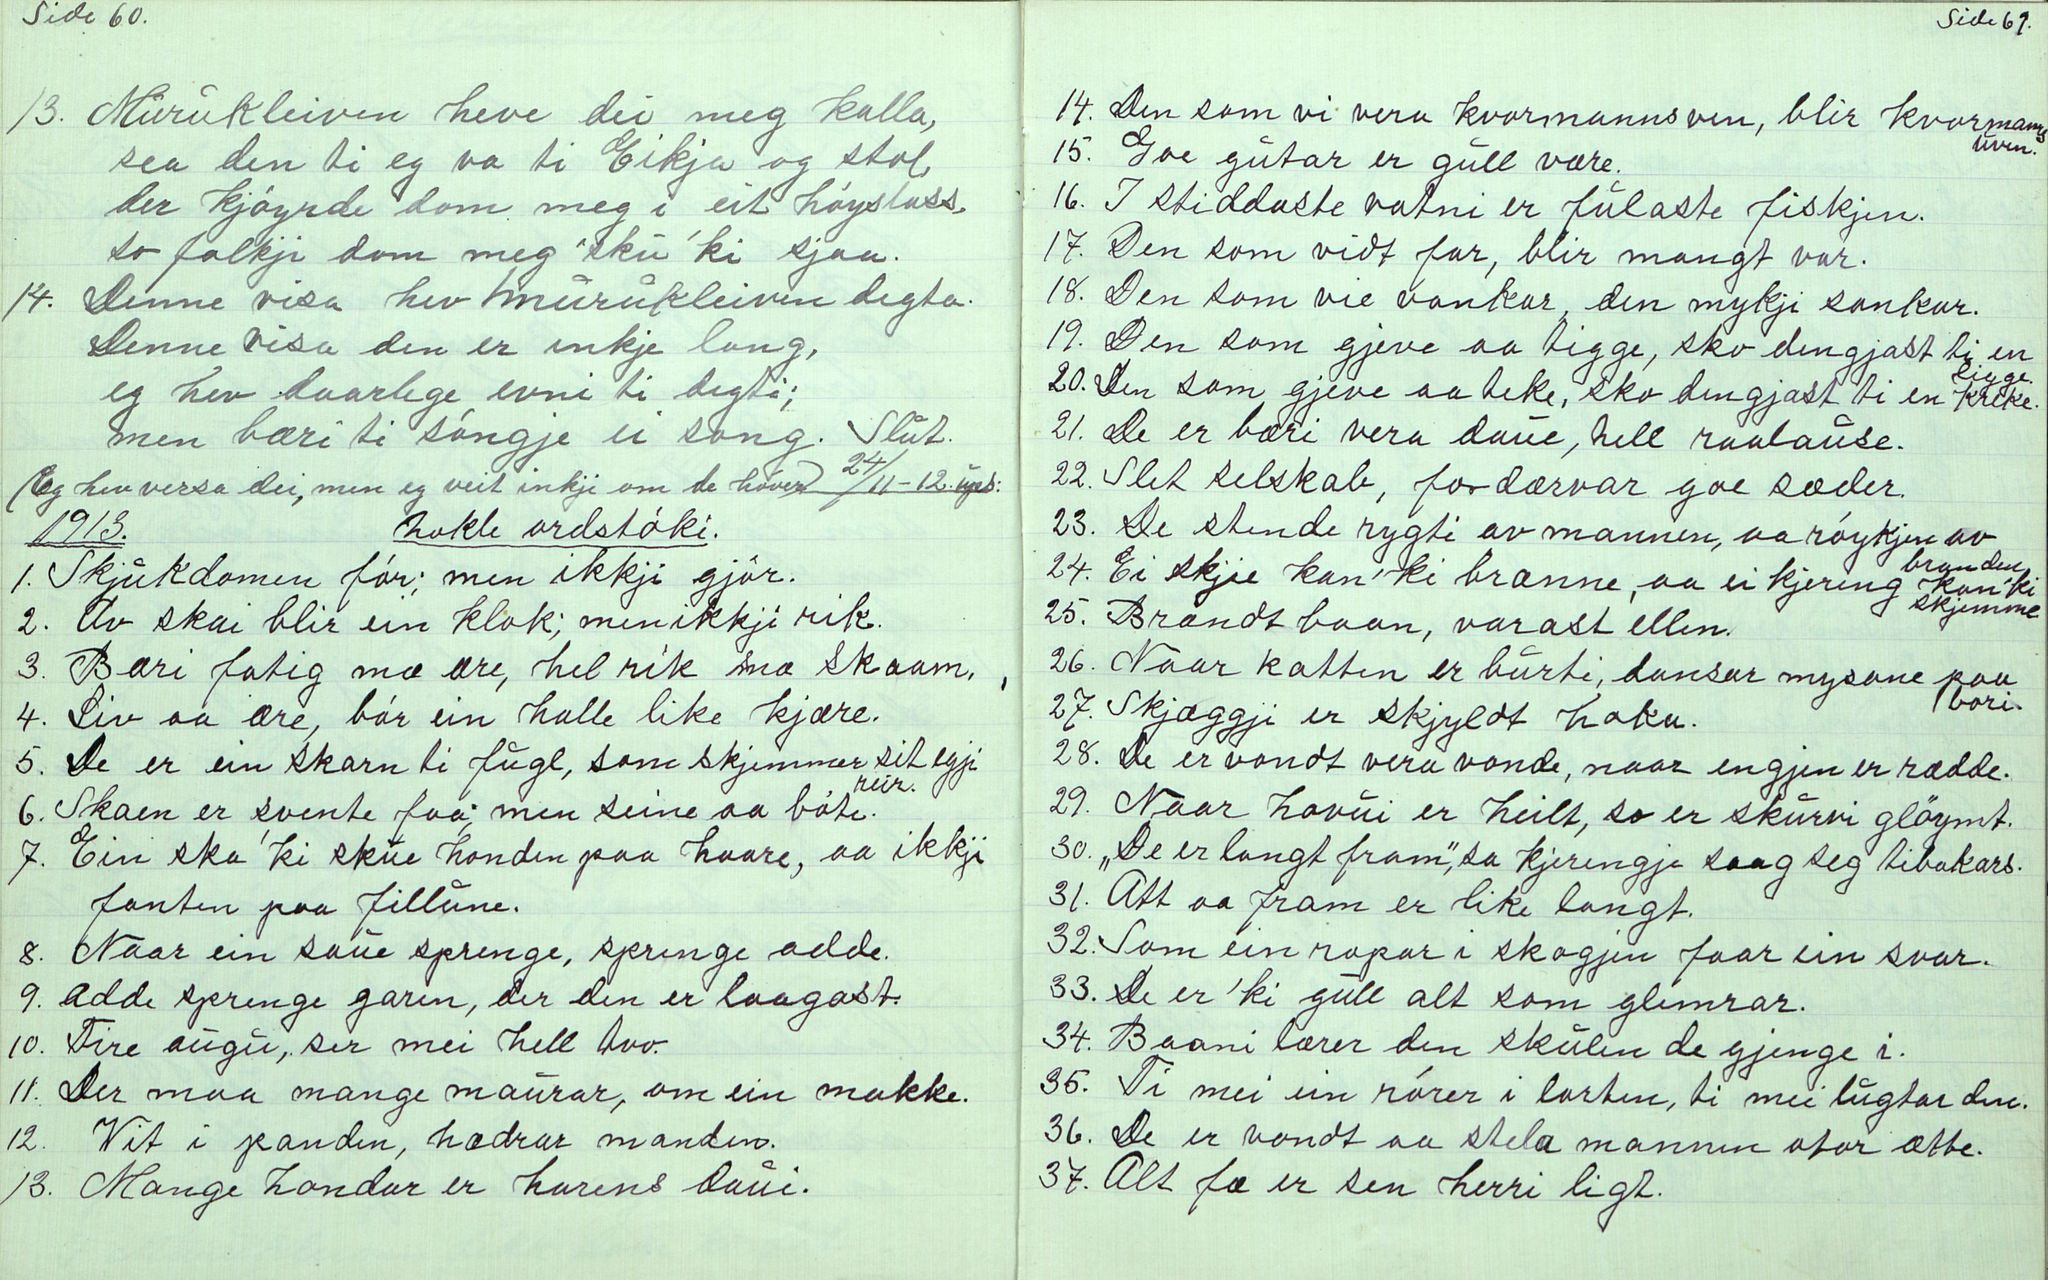 Side 60.
13. Mürükleiven heve dei meg kalla,
sea den ti eg va ti Eikja og stol,
der kjöyrde dom meg i eit höyslass,
so folkji dom meg 'skü 'ki sjaa.
14. Denne visa hev Mürükleiven degta.
Denne visa den er inkje lang,
eg hev daarlege evni ti degti;
men bæri ti söngje ei song. Slüt.
(Eg hev versa dei, men eg veit inkji om de höver) 24/11-12.
1913. Nokle ordstöki.
1. Skjükdomenför; men ikkji gjör.
2. Av skai blir ein klok; men ikkji rik.
3. Bæri fatig mæ ære, hel rik mæ skaam.
4. Liv aa ære, bör ein halle like kjære.
5. De er ein skarn ti fügl, som skjemmer sit egji
reir.
6. Skaen er svente faa; men seine aa böte.
7. Ein ska 'ki sküe honden paa haare, aa ikkji
fanten paa fillüne.
8. Naar ein saüe sprenge, sprenge adde.
9. Adde sprenge garen, der den er laagast.
10. Fire aügü, ser mei hell tvo.
11. Der maa mange maürar, om ein makke.
12. Vit i panden, hædrar manden.
13. Mange hondar er harens daüi.
Side 61.
14. Den som vi vera kvarmannsven, blir kvarmanns
üven.
15. Goe gütar er güll være.
16. I stiddaste vatni er fülaste fiskjen.
17. Den som vidt far, blir mangt var.
18. Den som vie vankar, den mykji sankar.
19. Den som gjeve aa tigge, sko dengjast ti en
ligge.
20. Den som gjeve aa teke, sko dengjast ti en kreke.
21. De er bæri vera daüe, hell raalaüse.
22. Slet selskab, fordærvar goe sæder.
23. De stende rygti av mannen, aa röykjen av
branden.
24. Ei skjie kan 'ki brænne, aa ei kjering kan 'ki
skjemme
25. Brændt baan, varast ellen.
26. Naar katten er bürti, dansar mysane paa
bori.
27. Skjæggji er skjyldt haka.
28. De er vondt vera vonde, naar engjen er rædde.
29. Naar hovüi er heilt, so er skürvi glöymt.
30. „De er langt fram", sa kjerengje saag seg tibakars.
31. Att aa fram er like langt.
32. Som ein ropar i skogjen faar ein svar.
33. De er 'ki güll alt som glimrar.
34. Baani lærer den skülen de gjenge i.
35. Ti mei ein rörer i lorten, ti mei lügtar den.
36. De er vondt aa stela mannen otor ætte.
37. Alt fæ er sen herri ligt.